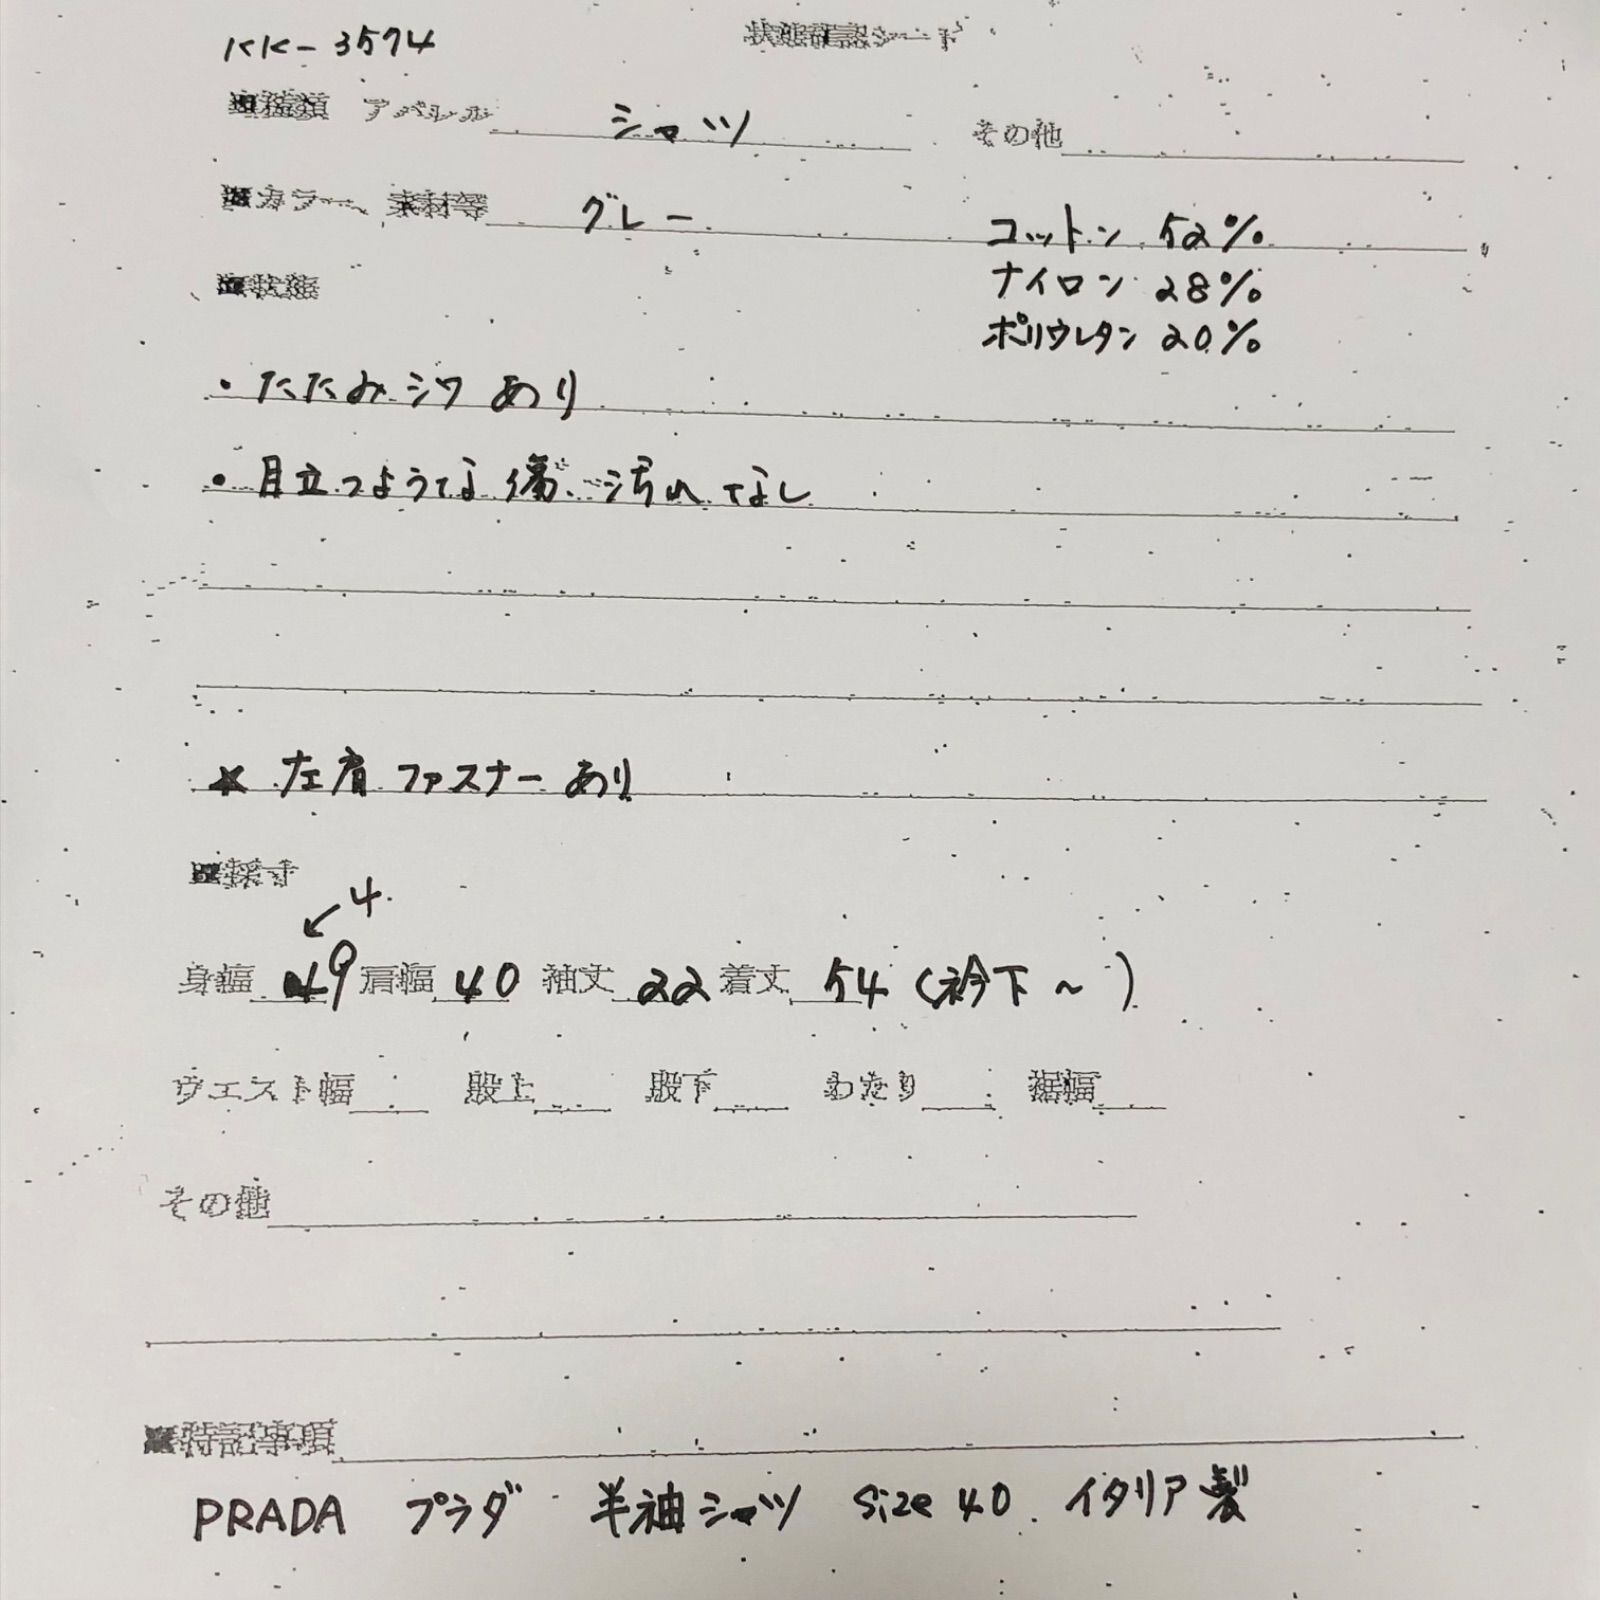 KK-3574
状態確認シート
■種類 アパレル シャツ その他
■カラー、素材等 グレー コットン 52%
ナイロン 28%
ポリウレタン 20%
■状態
・たたみシワ あり
・目立つような傷、汚れ なし
★ 左肩 ファスナー あり
■採寸
4
身幅 49 肩幅 40 袖丈 22 着丈 54 (衿下~)
ウエスト幅 股上 股下 わたり 裾幅
その他
■特記事項
PRADA プラダ 半袖シャツ size 40 イタリア製